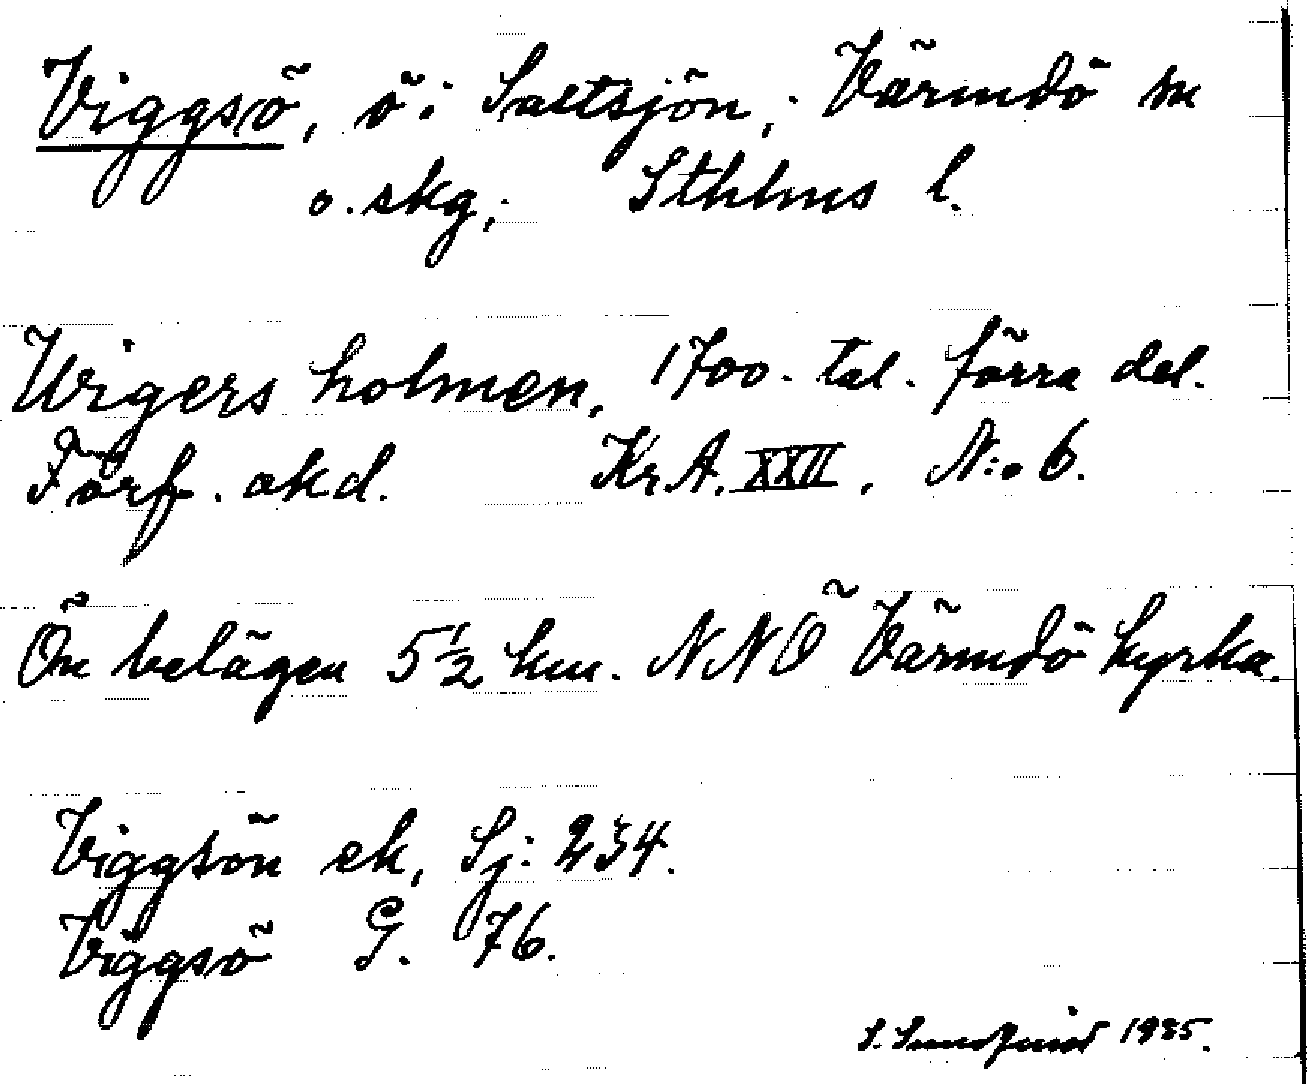 Viggsö, ö i Saltsjön, Värmdö sn
o. skg, Sthlms l.
Wigers holmen, 1700-tal. förra del.
Förf. akd. Kr.A. XXII, N:o 6.
Ön belägen 5½ km. NNÖ Värmdö kyrka.
Viggsön ek, Sj: 234.
Viggsö G. 76.
S. Sundquist 1935.